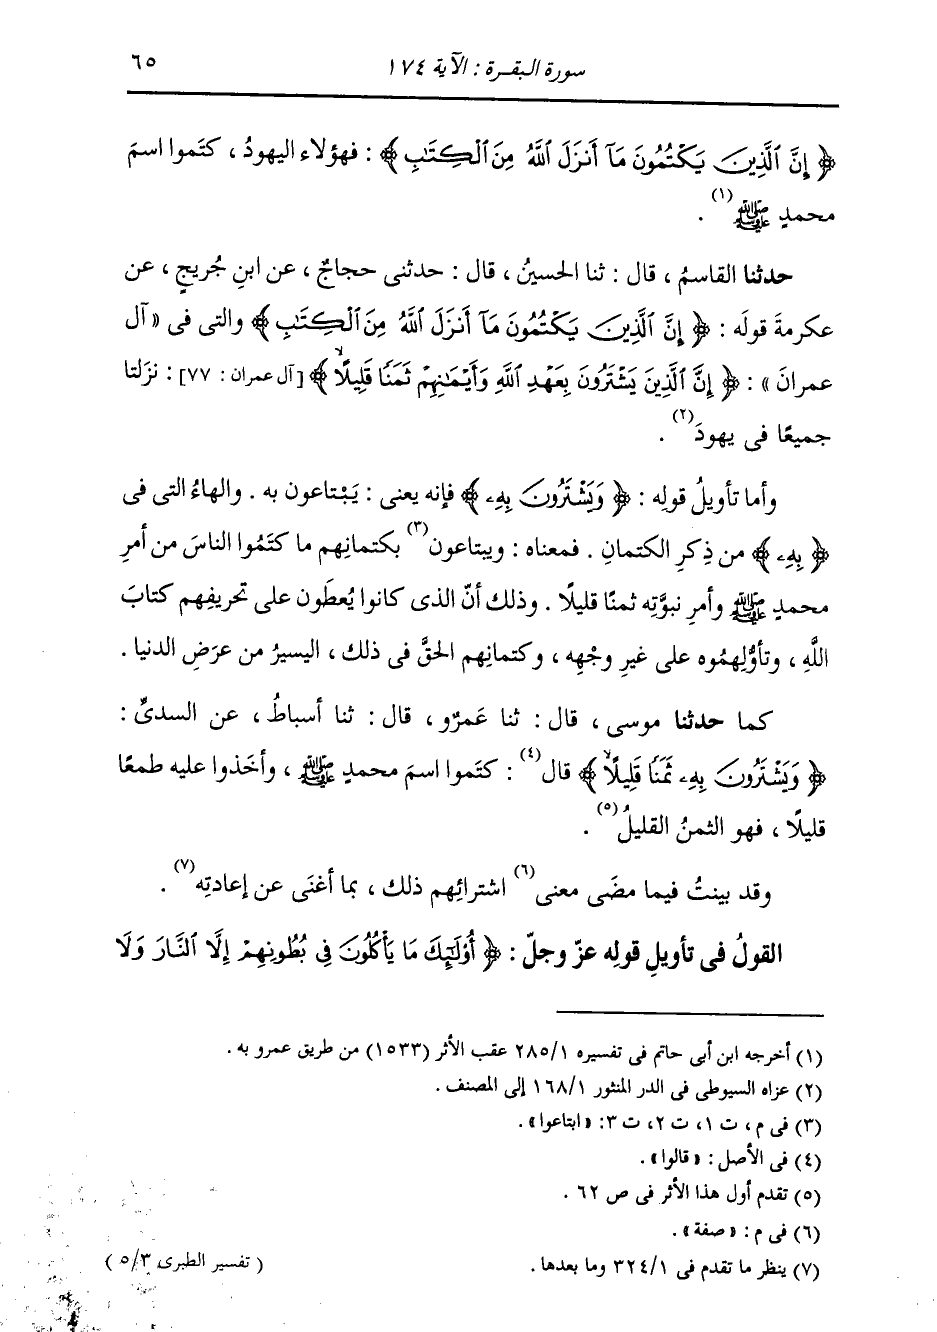 سورة البقرة : الآية ١٧٤
٦٥
﴿ إِنَّ الَّذِينَ يَكْتُمُونَ مَآ أَنزَلَ اللَّهُ مِنَ الْكِتَٰبِ ﴾ : فهؤلاء اليهودُ ، كتَموا اسمَ
محمدٍ ﷺ (١) .
حدثنا القاسمُ ، قال : ثنا الحسينُ ، قال : حدثنى حجاجٌ ، عن ابنِ جُريجٍ ، عن
عكرمةَ قولَه : ﴿ إِنَّ الَّذِينَ يَكْتُمُونَ مَآ أَنزَلَ اللَّهُ مِنَ الْكِتَٰبِ ﴾ والتى فى « آل
عمرانَ » : ﴿ إِنَّ الَّذِينَ يَشْتَرُونَ بِعَهْدِ اللَّهِ وَأَيْمَٰنِهِمْ ثَمَنًا قَلِيلًا ﴾ [آل عمران : ٧٧] : نزَلتا
جميعًا فى يهودَ (٢) .
وأما تأويلُ قولِه : ﴿ وَيَشْتَرُونَ بِهِۦ ﴾ فإنه يعنى : يَبْتاعون به . والهاءُ التى فى
﴿ بِهِۦ ﴾ من ذِكرِ الكتمانِ . فمعناه : ويبتاعون (٣) بكتمانِهم ما كتَمُوا الناسَ من أمرِ
محمدٍ ﷺ وأمرِ نبوَّتِه ثمنًا قليلًا . وذلك أنّ الذى كانوا يُعطَون على تحريفِهم كتابَ
اللَّهِ ، وتأوُّلِهمُوه على غيرِ وجْهِه ، وكتمانِهم الحقَّ فى ذلك ، اليسيرُ من عرَضِ الدنيا .
كما حدثنا موسى ، قال : ثنا عَمرٌو ، قال : ثنا أسباطُ ، عن السدىِّ :
﴿ وَيَشْتَرُونَ بِهِۦ ثَمَنًا قَلِيلًا ﴾ قال (٤) : كتَموا اسمَ محمدٍ ﷺ ، وأخَذوا عليه طمعًا
قليلًا ، فهو الثمنُ القليلُ (٥) .
وقد بينتُ فيما مضَى معنى (٦) اشترائِهم ذلك ، بما أغنَى عن إعادتِه (٧) .
القولُ فى تأويلِ قولِه عزّ وجلّ : ﴿ أُوْلَٰٓئِكَ مَا يَأْكُلُونَ فِى بُطُونِهِمْ إِلَّا النَّارَ وَلَا
(١) أخرجه ابن أبى حاتم فى تفسيره ٢٨٥/١ عقب الأثر (١٥٣٣) من طريق عمرو به .
(٢) عزاه السيوطى فى الدر المنثور ١٦٨/١ إلى المصنف .
(٣) فى م ، ت ١، ت ٢، ت ٣: «ابتاعوا» .
(٤) فى الأصل : « قالوا» .
(٥) تقدم أول هذا الأثر فى ص ٦٢ .
(٦) فى م : « صفة » .
(٧) ينظر ما تقدم فى ٣٢٤/١ وما بعدها .
( تفسير الطبرى ٥/٣ )